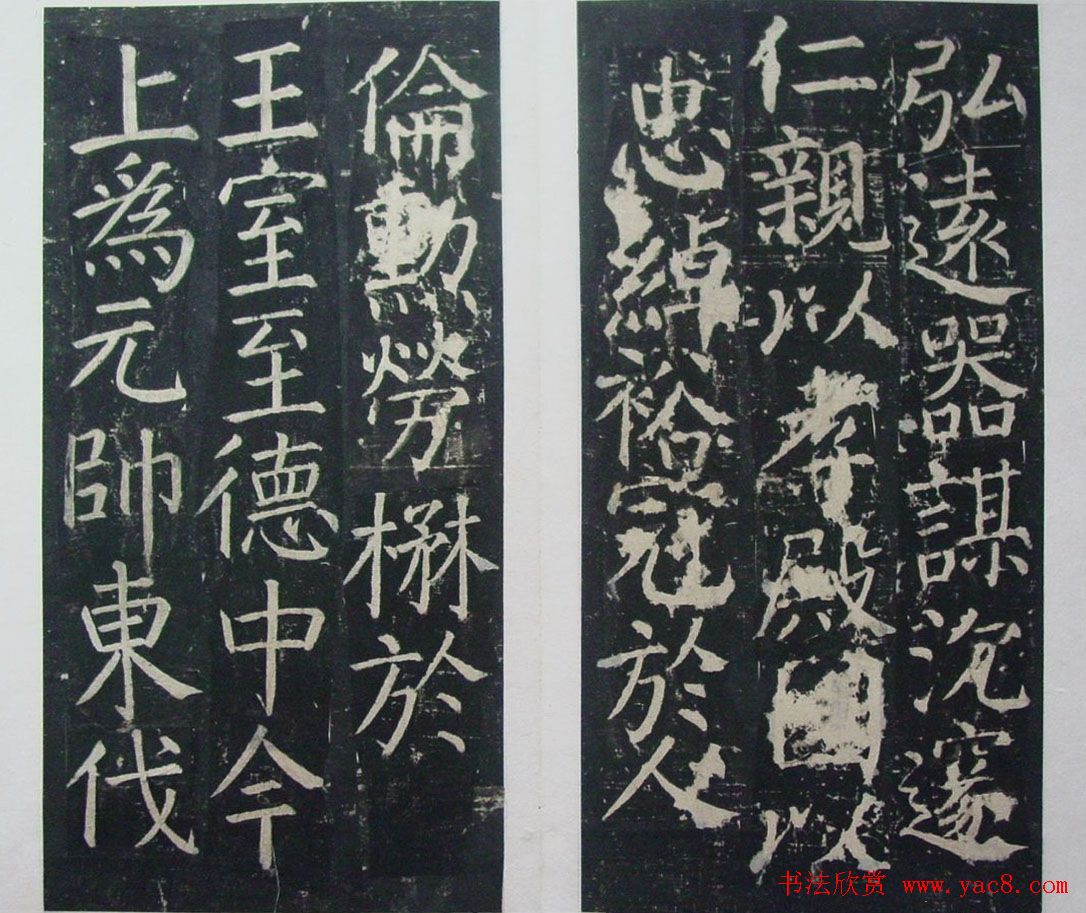 弘遠器謀沉邃
仁親以孝殿國以
忠綽裕冠於人
倫勳勞楙於
王室至德中今
上爲元帥東伐
书法欣赏 www.yac8.com